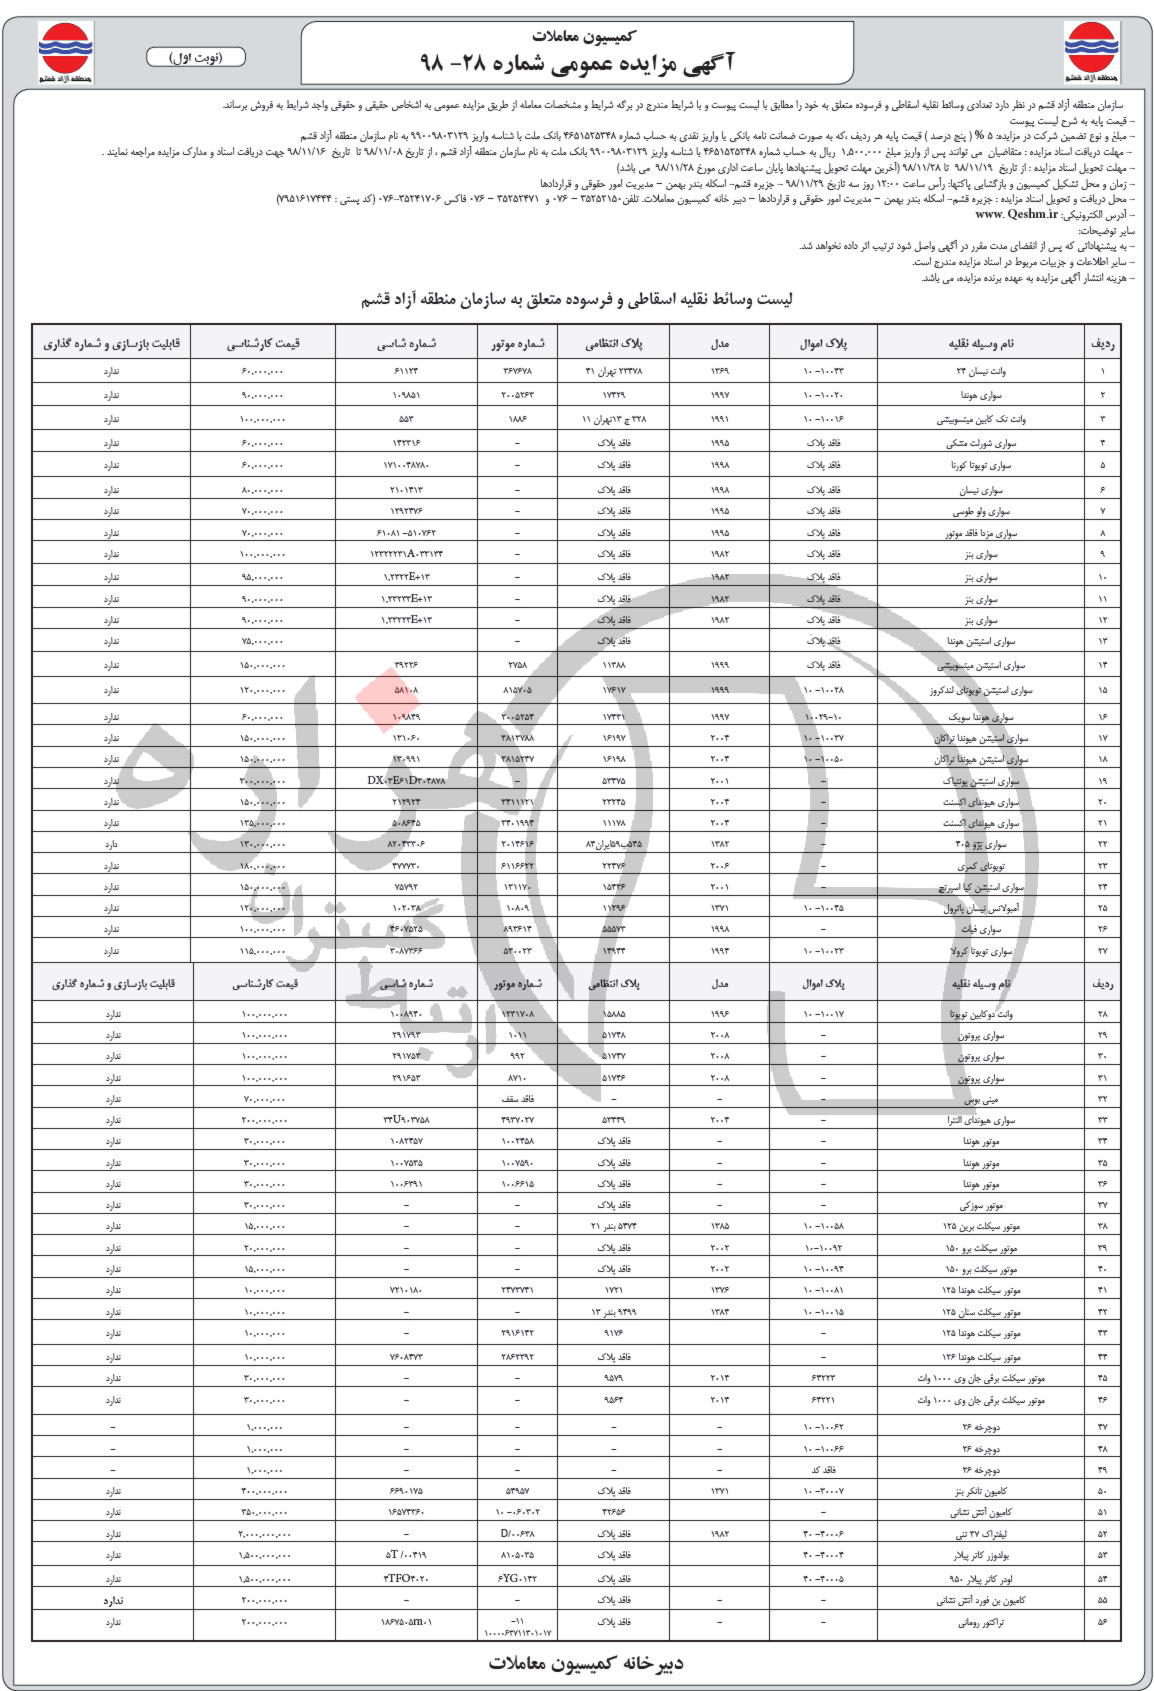 کمیسیون معاملات
آگهی مزایده عمومی شماره ۲۸- ۹۸
(نوبت اول)
منطقه آزاد قشم
منطقه آزاد قشم
سازمان منطقه آزاد قشم در نظر دارد تعدادی وسائط نقلیه اسقاطی و فرسوده متعلق به خود را مطابق با لیست پیوست و با شرایط مندرج در برگه شرایط و مشخصات معامله از طریق مزایده عمومی به اشخاص حقیقی و حقوقی واجد شرایط به فروش برساند.
- قیمت پایه به شرح لیست پیوست
- مبلغ و نوع تضمین شرکت در مزایده: ۵ % ( پنج درصد ) قیمت پایه هر ردیف ،که به صورت ضمانت نامه بانکی یا واریز نقدی به حساب شماره ۴۶۵۱۵۲۵۳۴۸ بانک ملت با شناسه واریز ۹۹۰۰۹۸۰۳۱۲۹ به نام سازمان منطقه آزاد قشم
- مهلت دریافت اسناد مزایده : متقاضیان می توانند پس از واریز مبلغ ۱,۵۰۰,۰۰۰ ریال به حساب شماره ۴۶۵۱۵۲۵۳۴۸ با شناسه واریز ۹۹۰۰۹۸۰۳۱۲۹ بانک ملت به نام سازمان منطقه آزاد قشم ، از تاریخ ۹۸/۱۱/۰۸ تا تاریخ ۹۸/۱۱/۱۶ جهت دریافت اسناد و مدارک مزایده مراجعه نمایند .
- مهلت تحویل اسناد مزایده : از تاریخ ۹۸/۱۱/۱۹ تا ۹۸/۱۱/۲۸ (آخرین مهلت تحویل پیشنهادها پایان ساعت اداری مورخ ۹۸/۱۱/۲۸ می باشد)
- زمان و محل تشکیل کمیسیون و بازگشایی پاکتها: رأس ساعت ۱۲:۰۰ روز سه تاریخ ۹۸/۱۱/۲۹ - جزیره قشم- اسکله بندر بهمن - مدیریت امور حقوقی و قراردادها
- محل دریافت و تحویل اسناد مزایده : جزیره قشم- اسکله بندر بهمن - مدیریت امور حقوقی و قراردادها - دبیر خانه کمیسیون معاملات. تلفن۳۵۲۵۲۱۵۰ - ۰۷۶ و ۳۵۲۵۲۴۷۱ - ۰۷۶ فاکس ۳۵۲۴۱۷۰۶-۰۷۶ (کد پستی : ۷۹۵۱۶۱۷۴۴۴)
- آدرس الکترونیکی: www. Qeshm.ir
سایر توضیحات:
- به پیشنهاداتی که پس از انقضای مدت مقرر در آگهی واصل شود ترتیب اثر داده نخواهد شد.
- سایر اطلاعات و جزییات مربوط در اسناد مزایده مندرج است.
- هزینه انتشار آگهی مزایده به عهده برنده مزایده، می باشد.
لیست وسائط نقلیه اسقاطی و فرسوده متعلق به سازمان منطقه آزاد قشم
ردیف نام وسیله نقلیه پلاک اموال مدل پلاک انتظامی شماره موتور شماره شاسی قیمت کارشناسی قابلیت بازسازی و شماره گذاری
۱ وانت نیسان ۲۴ ۱۰۰۴۳-۱۰ ۱۳۶۹ ۲۳۴۷۸ تهران ۴۱ ۳۶۷۶۷۸ ۶۱۱۲۴ ۶۰,۰۰۰,۰۰۰ ندارد
۲ سواری هوندا ۱۰۰۲۰-۱۰ ۱۹۹۷ ۱۷۴۲۹ ۲۰۰۵۲۶۳ ۱۰۹۸۵۱ ۹۰,۰۰۰,۰۰۰ ندارد
۳ وانت تک کابین میتسوبیشی ۱۰۰۱۶-۱۰ ۱۹۹۱ ۳۲۸ ج ۱۳تهران ۱۱ ۱۸۸۶ ۵۵۳ ۱۰۰,۰۰۰,۰۰۰ ندارد
۴ سواری شورلت مشکی فاقد پلاک ۱۹۹۵ فاقد پلاک - ۱۴۲۳۱۶ ۶۰,۰۰۰,۰۰۰ ندارد
۵ سواری تویوتا کورنا فاقد پلاک ۱۹۹۸ فاقد پلاک - ۱۷۱۰۰۴۸۷۸۰ ۶۰,۰۰۰,۰۰۰ ندارد
۶ سواری نیسان فاقد پلاک ۱۹۹۸ فاقد پلاک - ۲۱۰۱۴۱۳ ۸۰,۰۰۰,۰۰۰ ندارد
۷ سواری ولو طوسی فاقد پلاک ۱۹۹۵ فاقد پلاک - ۱۲۹۲۴۷۶ ۷۰,۰۰۰,۰۰۰ ندارد
۸ سواری مزدا فاقد موتور فاقد پلاک ۱۹۹۵ فاقد پلاک - ۵۱۰۷۶۲-۶۱۰۸۱ ۷۰,۰۰۰,۰۰۰ ندارد
۹ سواری بنز فاقد پلاک ۱۹۸۲ فاقد پلاک - ۱۲۳۲۲۲۳۱A۰۳۳۱۳۴ ۱۰۰,۰۰۰,۰۰۰ ندارد
۱۰ سواری بنز فاقد پلاک ۱۹۸۲ فاقد پلاک - ۱,۲۳۲۲E+۱۳ ۹۵,۰۰۰,۰۰۰ ندارد
۱۱ سواری بنز فاقد پلاک ۱۹۸۲ فاقد پلاک - ۱,۲۳۲۳۳E+۱۳ ۹۰,۰۰۰,۰۰۰ ندارد
۱۲ سواری بنز فاقد پلاک ۱۹۸۲ فاقد پلاک - ۱,۲۳۲۲۳E+۱۳ ۹۰,۰۰۰,۰۰۰ ندارد
۱۳ سواری استیشن هوندا فاقد پلاک فاقد پلاک - ۷۵,۰۰۰,۰۰۰ ندارد
۱۴ سواری استیشن میتسوبیشی فاقد پلاک ۱۹۹۹ ۱۱۳۸۸ ۲۷۵۸ ۳۹۲۲۶ ۱۵۰,۰۰۰,۰۰۰ ندارد
۱۵ سواری استیشن تویوتای لندکروز ۱۰۰۲۸-۱۰ ۱۹۹۹ ۱۷۶۱۷ ۸۱۵۷۰۵ ۵۸۱۰۸ ۱۲۰,۰۰۰,۰۰۰ ندارد
۱۶ سواری هوندا سویک ۱۰-۱۰۰۲۹ ۱۹۹۷ ۱۷۴۳۱ ۲۰۰۵۲۵۴ ۱۰۹۸۴۹ ۶۰,۰۰۰,۰۰۰ ندارد
۱۷ سواری استیشن هیوندا تراکان ۱۰۰۳۷-۱۰ ۲۰۰۴ ۱۶۱۹۷ ۳۸۱۳۷۸۸ ۱۳۱۰۶۰ ۱۵۰,۰۰۰,۰۰۰ ندارد
۱۸ سواری استیشن هیوندا تراکان ۱۰۰۵۰-۱۰ ۲۰۰۴ ۱۶۱۹۸ ۳۸۱۵۲۴۷ ۱۳۰۹۹۱ ۱۵۰,۰۰۰,۰۰۰ ندارد
۱۹ سواری استیشن پونتیاک - ۲۰۰۱ ۵۳۴۷۵ - DX۰۳E۶۱D۳۰۴۸۷۸ ۲۰۰,۰۰۰,۰۰۰ ندارد
۲۰ سواری هیوندای اکسنت - ۲۰۰۴ ۲۳۲۴۵ ۳۴۱۱۱۲۱ ۲۱۲۹۲۴ ۱۵۰,۰۰۰,۰۰۰ ندارد
۲۱ سواری هیوندای اکسنت - ۲۰۰۴ ۱۱۱۷۸ ۳۴۰۱۹۹۴ ۵۰۸۶۴۵ ۱۳۵,۰۰۰,۰۰۰ ندارد
۲۲ سواری پژو ۴۰۵ - ۱۳۸۲ ۵۴۵ب۵۹ایران۸۴ ۲۰۱۴۶۱۶ ۸۲۰۴۳۳۰۶ ۱۳۰,۰۰۰,۰۰۰ دارد
۲۳ تویوتای کمری - ۲۰۰۶ ۲۲۴۷۶ ۶۱۱۶۶۲۲ ۴۷۷۷۳۰ ۱۸۰,۰۰۰,۰۰۰ ندارد
۲۴ سواری استیشن کیا اسپرتیج - ۲۰۰۱ ۱۵۴۳۶ ۱۳۱۱۷۰ ۷۵۷۹۲ ۱۵۰,۰۰۰,۰۰۰ ندارد
۲۵ آمبولانس نیسان پاترول ۱۰۰۴۵-۱۰ ۱۳۷۱ ۱۱۲۹۶ ۱۰۸۰۹ ۱۰۲۰۳۸ ۱۲۰,۰۰۰,۰۰۰ ندارد
۲۶ سواری فیات - ۱۹۹۸ ۵۵۵۷۳ ۸۹۳۶۱۴ ۴۶۰۷۵۲۵ ۱۰۰,۰۰۰,۰۰۰ ندارد
۲۷ سواری تویوتا کرولا ۱۰۰۲۳-۱۰ ۱۹۹۴ ۱۴۹۴۴ ۵۴۰۰۲۳ ۳۰۸۷۳۶۶ ۱۱۵,۰۰۰,۰۰۰ ندارد
ردیف نام وسیله نقلیه پلاک اموال مدل پلاک انتظامی شماره موتور شماره شاسی قیمت کارشناسی قابلیت بازسازی و شماره گذاری
۲۸ وانت دوکابین تویوتا ۱۰۰۱۷-۱۰ ۱۹۹۶ ۱۵۸۸۵ ۱۲۳۱۷۰۸ ۱۰۰۸۹۴۰ ۱۰۰,۰۰۰,۰۰۰ ندارد
۲۹ سواری پروتون - ۲۰۰۸ ۵۱۷۴۸ ۱۰۱۱ ۲۹۱۷۹۳ ۱۰۰,۰۰۰,۰۰۰ ندارد
۳۰ سواری پروتون - ۲۰۰۸ ۵۱۷۴۷ ۹۹۲ ۲۹۱۷۵۳ ۱۰۰,۰۰۰,۰۰۰ ندارد
۳۱ سواری پروتون - ۲۰۰۸ ۵۱۷۴۶ ۸۷۱۰ ۲۹۱۶۵۳ ۱۰۰,۰۰۰,۰۰۰ ندارد
۳۲ مینی بوس - - - فاقد سقف ۷۰,۰۰۰,۰۰۰ ندارد
۳۳ سواری هیوندای النترا - ۲۰۰۴ ۵۳۴۴۹ ۴۹۳۷۰۲۷ ۳۴U۹۰۳۷۵۸ ۲۰۰,۰۰۰,۰۰۰ ندارد
۳۴ موتور هوندا - - فاقد پلاک ۱۰۰۲۴۵۸ ۱۰۸۲۴۵۷ ۳۰,۰۰۰,۰۰۰ ندارد
۳۵ موتور هوندا - - فاقد پلاک ۱۰۰۷۵۹۰ ۱۰۰۷۵۳۵ ۳۰,۰۰۰,۰۰۰ ندارد
۳۶ موتور هوندا - - فاقد پلاک ۱۰۰۶۶۱۵ ۱۰۰۶۳۹۱ ۳۰,۰۰۰,۰۰۰ ندارد
۳۷ موتور سوزکی - - فاقد پلاک - - ۳۰,۰۰۰,۰۰۰ ندارد
۳۸ موتور سیکلت برین ۱۲۵ ۱۰۰۵۸-۱۰ ۱۳۸۵ ۵۴۷۴ بندر ۲۱ - - ۱۵,۰۰۰,۰۰۰ ندارد
۳۹ موتور سیکلت برو ۱۵۰ ۱۰۰۹۲-۱۰ ۲۰۰۲ فاقد پلاک - - ۲۰,۰۰۰,۰۰۰ ندارد
۴۰ موتور سیکلت برو ۱۵۰ ۱۰۰۹۴-۱۰ ۲۰۰۲ فاقد پلاک - - ۱۵,۰۰۰,۰۰۰ ندارد
۴۱ موتور سیکلت هوندا ۱۲۵ ۱۰۰۸۱-۱۰ ۱۳۷۶ ۱۷۲۱ ۲۴۷۳۷۴۱ ۷۲۱۰۱۸۰ ۱۰,۰۰۰,۰۰۰ ندارد
۴۲ موتور سیکلت ستان ۱۲۵ ۱۰۰۱۵-۱۰ ۱۳۸۴ ۹۴۹۹ بندر ۱۳ - - ۱۰,۰۰۰,۰۰۰ ندارد
۴۳ موتور سیکلت هوندا ۱۲۵ - ۹۱۷۶ ۲۹۱۶۱۴۲ - ۱۰,۰۰۰,۰۰۰ ندارد
۴۴ موتور سیکلت هوندا ۱۲۶ - فاقد پلاک ۲۸۶۲۳۹۲ ۷۶۰۸۴۷۳ ۱۰,۰۰۰,۰۰۰ ندارد
۴۵ موتور سیکلت برقی جان وی ۱۰۰۰ وات ۶۴۲۲۳ ۲۰۱۴ ۹۵۷۹ - - ۳۰,۰۰۰,۰۰۰ ندارد
۴۶ موتور سیکلت برقی جان وی ۱۰۰۰ وات ۶۴۲۲۱ ۲۰۱۴ ۹۵۶۴ - - ۳۰,۰۰۰,۰۰۰ ندارد
۴۷ دوچرخه ۲۶ ۱۰۰۶۲-۱۰ - - - - ۱,۰۰۰,۰۰۰ -
۴۸ دوچرخه ۲۶ ۱۰۰۶۶-۱۰ - - - - ۱,۰۰۰,۰۰۰ -
۴۹ دوچرخه ۲۶ فاقد کد - - - - ۱,۰۰۰,۰۰۰ -
۵۰ کامیون تانکر بنز ۳۰۰۰۷-۱۰ ۱۳۷۱ فاقد پلاک ۵۴۹۵۷ ۶۶۹۰۱۷۵ ۴۰۰,۰۰۰,۰۰۰ ندارد
۵۱ کامیون آتش نشانی - ۴۲۶۵۶ ۱۰-۰۰۶۰۳۰۲ ۱۶۵۷۴۳۶۰ ۳۵۰,۰۰۰,۰۰۰ ندارد
۵۲ لیفتراک ۳۷ تنی ۴۰۰۰۶-۴۰ ۱۹۸۲ فاقد پلاک D/۰۰۶۳۸ - ۲,۰۰۰,۰۰۰,۰۰۰ ندارد
۵۳ بولدوزر کاتر پیلار ۴۰۰۰۴-۴۰ فاقد پلاک ۸۱۰۵۰۳۵ ۵T/۰۰۴۱۹ ۱,۵۰۰,۰۰۰,۰۰۰ ندارد
۵۴ لودر کاتر پیلار ۹۵۰ ۴۰۰۰۵-۴۰ فاقد پلاک ۶YG۰۱۴۲ ۳TFO۴۰۲۰ ۱,۵۰۰,۰۰۰,۰۰۰ ندارد
۵۵ کامیون بن فورد آتش نشانی - - فاقد پلاک - - ۲۰۰,۰۰۰,۰۰۰ ندارد
۵۶ تراکتور رومانی - - فاقد پلاک ۱۱-۱۰۰۰۰۶۳۷۱۱۳۰۱۰۱۷ ۱۸۶۷۵۰۵m۰۱ ۲۰۰,۰۰۰,۰۰۰ ندارد
هزاره
ارتباط گستران
دبیرخانه کمیسیون معاملات